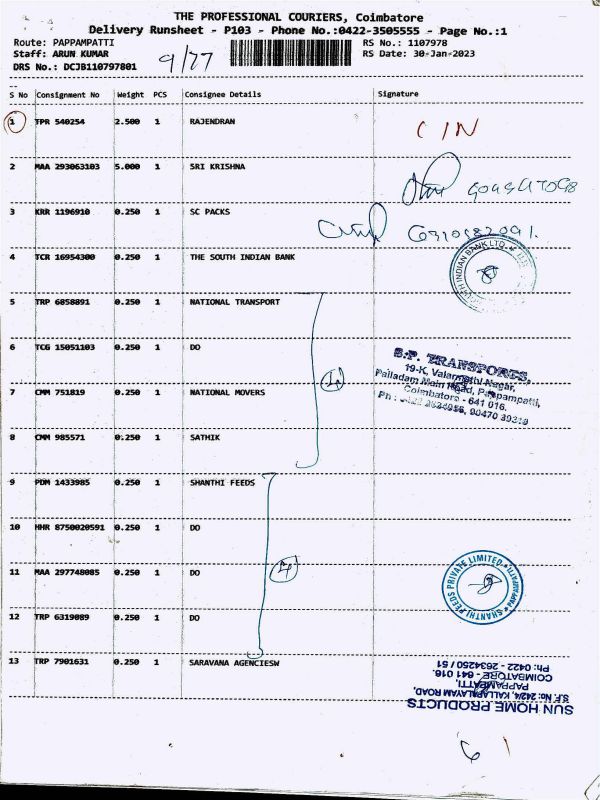 THE PROFESSIONAL COURIERS, Coimbatore
Delivery Runsheet - P103 - Phone No.:0422-3505555 - Page No.:1
Route: PAPPAMPATTI
Staff: ARUN KUMAR
DRS No.: DCJB110797801
9/77
RS No.: 1107978
RS Date: 30-Jan-2023
S No Consignment No Weight PCS Consignee Details Signature
1 TPR 540254 2.500 1 RAJENDRAN C/N
2 MAA 293063103 5.000 1 SRI KRISHNA
3 KRR 1196910 0.250 1 SC PACKS
4 TCR 16954300 0.250 1 THE SOUTH INDIAN BANK
SOUTH INDIAN BANK LTD.
5 TRP 6858891 0.250 1 NATIONAL TRANSPORT
6 TCG 15051103 0.250 1 DO
S.P. TRANSPORES,
19-K, Valarmathi Nagar,
Palladam Main Road, Pappampatti,
Coimbatore - 641 016.
7 CMM 751819 0.250 1 NATIONAL MOVERS
8 CMM 985571 0.250 1 SATHIK
9 PDM 1433985 0.250 1 SHANTHI FEEDS
10 HHR 8750020591 0.250 1 DO
11 MAA 297748085 0.250 1 DO
SHANTHI FEEDS PRIVATE LIMITED
12 TRP 6319089 0.250 1 DO
13 TRP 7901631 0.250 1 SARAVANA AGENCIESW
SUN HOME PRODUCTS
S.F. No: 242/4, KALLAPALAYAM ROAD,
PAPPAMPATTI,
COIMBATORE - 641 016.
Ph: 0422 - 2634250 / 51